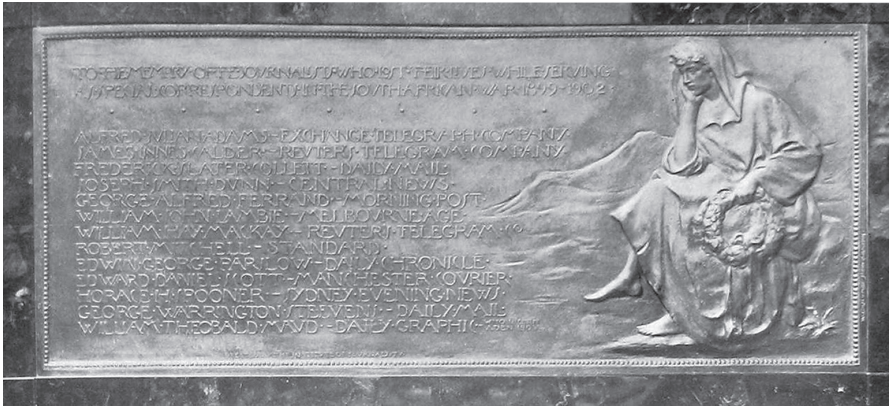 TO THE MEMORY OF THE JOURNALISTS WHO LOST THEIR LIVES WHILE SERVING
AS SPECIAL CORRESPONDENTS IN THE SOUTH AFRICAN WAR 1899-1902
ALFRED JULIAN ADAMS - EXCHANGE TELEGRAPH COMPANY
JAMES INNES CALDER - REUTERS TELEGRAM COMPANY
FREDERICK SLATER COLLETT - DAILY MAIL
JOSEPH SMITH DUNN - CENTRAL NEWS
GEORGE ALFRED FERRAND - MORNING POST
WILLIAM JOHN LAMBIE - MELBOURNE AGE
WILLIAM HAY MACKAY - REUTERS TELEGRAM CO
ROBERT MITCHELL - STANDARD
EDWIN GEORGE PARSLOW - DAILY CHRONICLE
EDWARD DANIEL SCOTT - MANCHESTER COURIER
HORACE H SPOONER - SYDNEY EVENING NEWS
GEORGE WARRINGTON STEEVENS - DAILY MAIL
WILLIAM THEOBALD MAUD - DAILY GRAPHIC